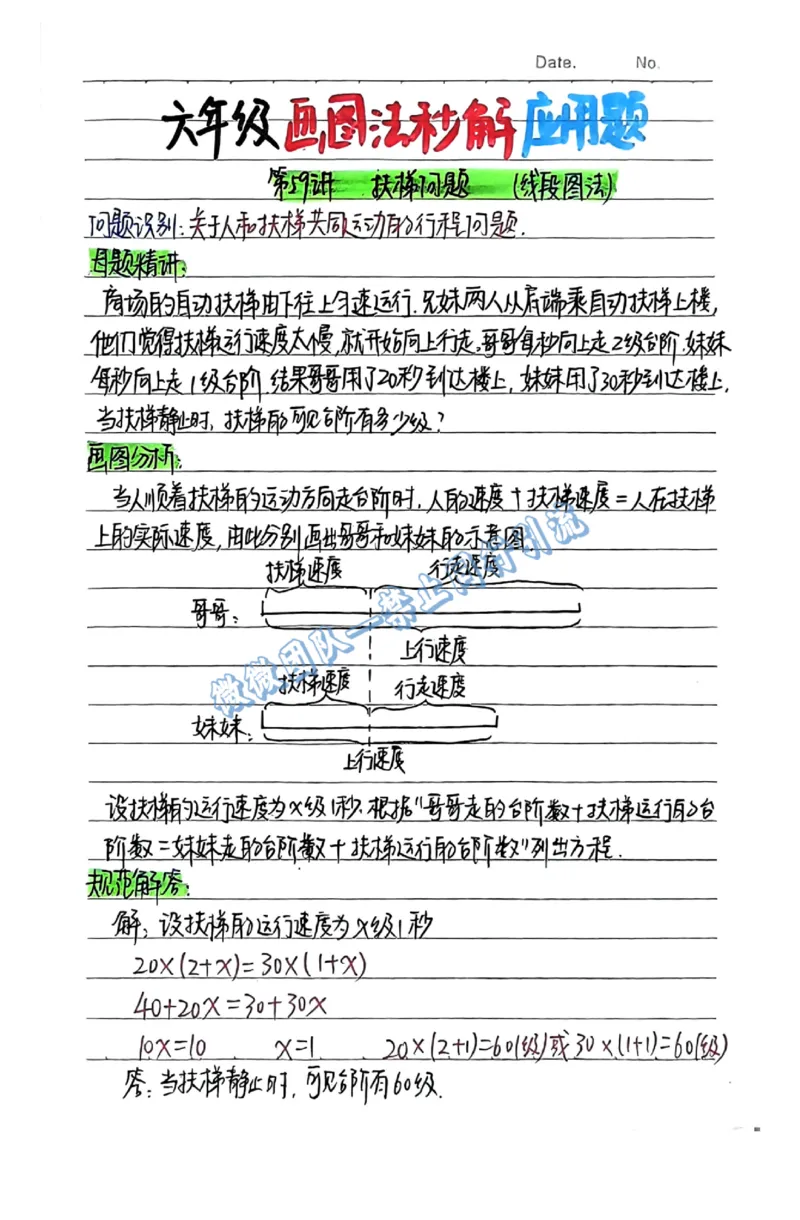 Date. No.
六年级画图法秒解应用题
第59讲 扶梯问题 (线段图法)
问题识别:关于人和扶梯共同运动的行程问题.
母题精讲:
商场的自动扶梯由下往上匀速运行.兄妹两人从底端乘自动扶梯上楼,
他们觉得扶梯运行速度太慢,就开始向上行走。哥哥每秒向上走2级台阶.妹妹
每秒向上走1级台阶.结果哥哥用了20秒到达楼上,妹妹用了30秒到达楼上.
当扶梯静止时,扶梯的可见台阶有多少级?
画图分析:
当人顺着扶梯的运动方向走台阶时,人的速度+扶梯速度=人在扶梯
上的实际速度,由此分别画出哥哥和妹妹的示意图.
扶梯速度 行走速度
哥哥:
上行速度
扶梯速度 行走速度
妹妹:
上行速度
微微团队一禁止同行引流
设扶梯的运行速度为x级/秒.根据"哥哥走的台阶数+扶梯运行的台
阶数=妹妹走的台阶数+扶梯运行的台阶数"列出方程.
规范解答:
解:设扶梯的运行速度为x级/秒
20×(2+x)=30×(1+x)
40+20x=30+30x
10x=10 x=1 20×(2+1)=60(级)或30×(1+1)=60(级)
答:当扶梯静止时,可见台阶有60级.